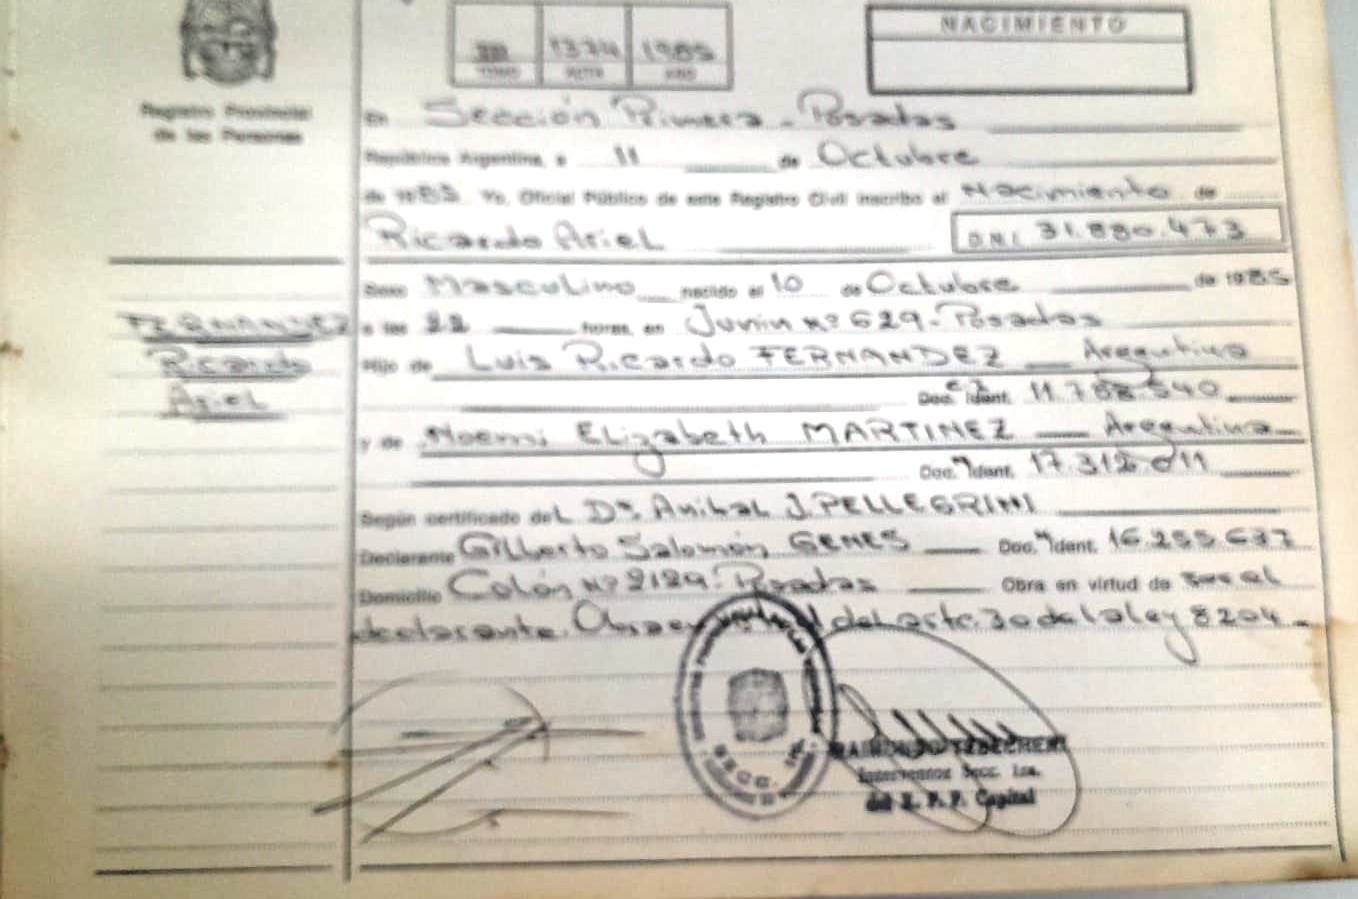 NACIMIENTO
III 1334 1985
TOMO ACTA AÑO
Registro Provincial
de las Personas
En Sección Primera - Posadas
República Argentina, a 11 de Octubre
de 1985 Yo, Oficial Público de este Registro Civil inscribo el Nacimiento de
Ricardo Ariel D.N.I. 31.880.473
Sexo Masculino nacido el 10 de Octubre de 1985
FERNANDEZ
Ricardo
Ariel
a las 22 horas, en Junin nº 629 - Posadas
Hijo de Luis Ricardo FERNANDEZ Argentino
Doc. Ident. 11.768.540
y de Noemi Elizabeth MARTINEZ Argentina
Doc. Ident. 17.312.011
Según certificado del Dr. Anibal J. PELLEGRINI
Declarante Gilberto Salomón GENES Doc. Ident. 16.255.637
Domicilio Colón Nº 2129 - Posadas Obra en virtud de ser el
declarante. del art. 30 de la ley 8204 -
SECC.
Interventor Secc. 1ra.
del R. P. P. Capital